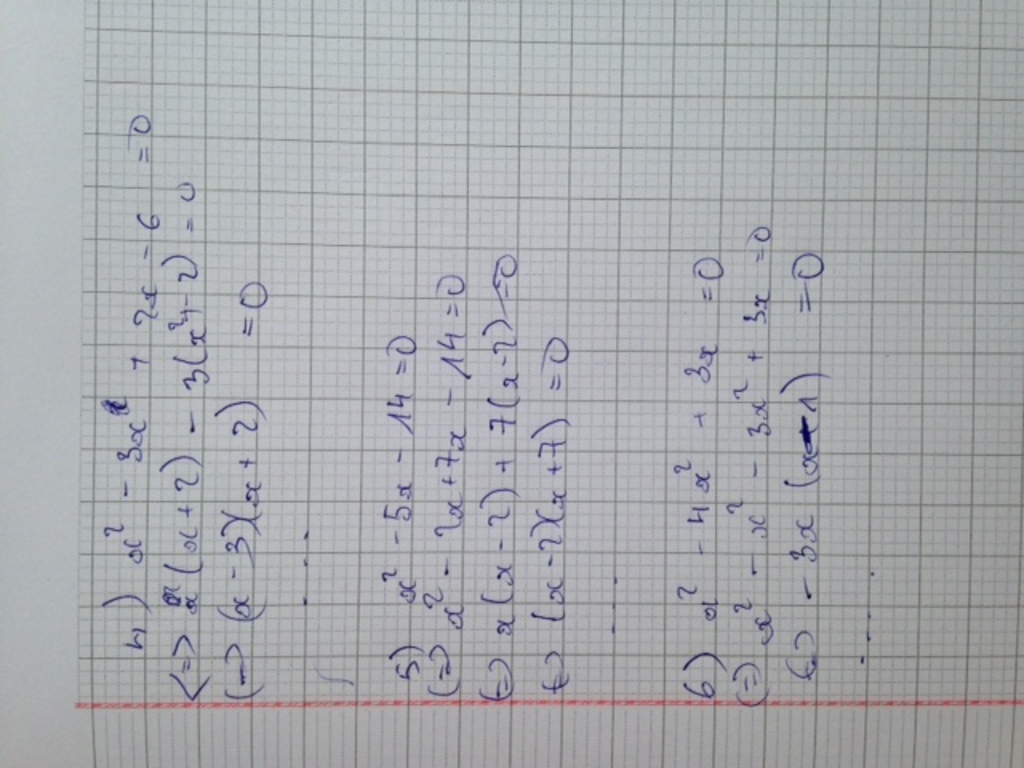 4) x² - 3x + 2x - 6 = 0
<=> x(x + 2) - 3(x + 2) = 0
<=> (x - 3)(x + 2) = 0
.....
5) x² - 5x - 14 = 0
<=> x² - 2x + 7x - 14 = 0
<=> x(x - 2) + 7(x - 2) = 0
<=> (x - 2)(x + 7) = 0
.....
6) x² - 4x² + 3x = 0
<=> x² - x² - 3x² + 3x = 0
<=> - 3x (x - 1) = 0
.....